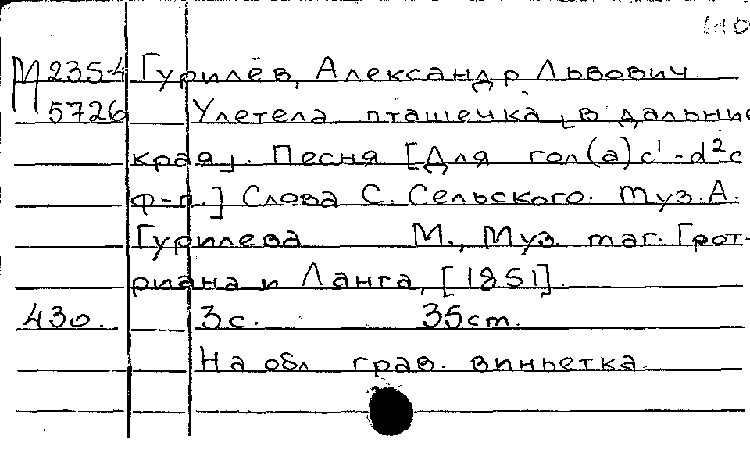 М 235-4 Гурилёв, Александр Львович
5726 Улетела пташечка [в дальние
края]. Песня [Для гол(а) c¹-d² с
ф-п.] Слова С. Сельского. Муз. А.
Гурилева М., Муз. маг. Грот-
риана и Ланга, [1851].
430. 3 с. 35 cm.
На обл грав. виньетка.